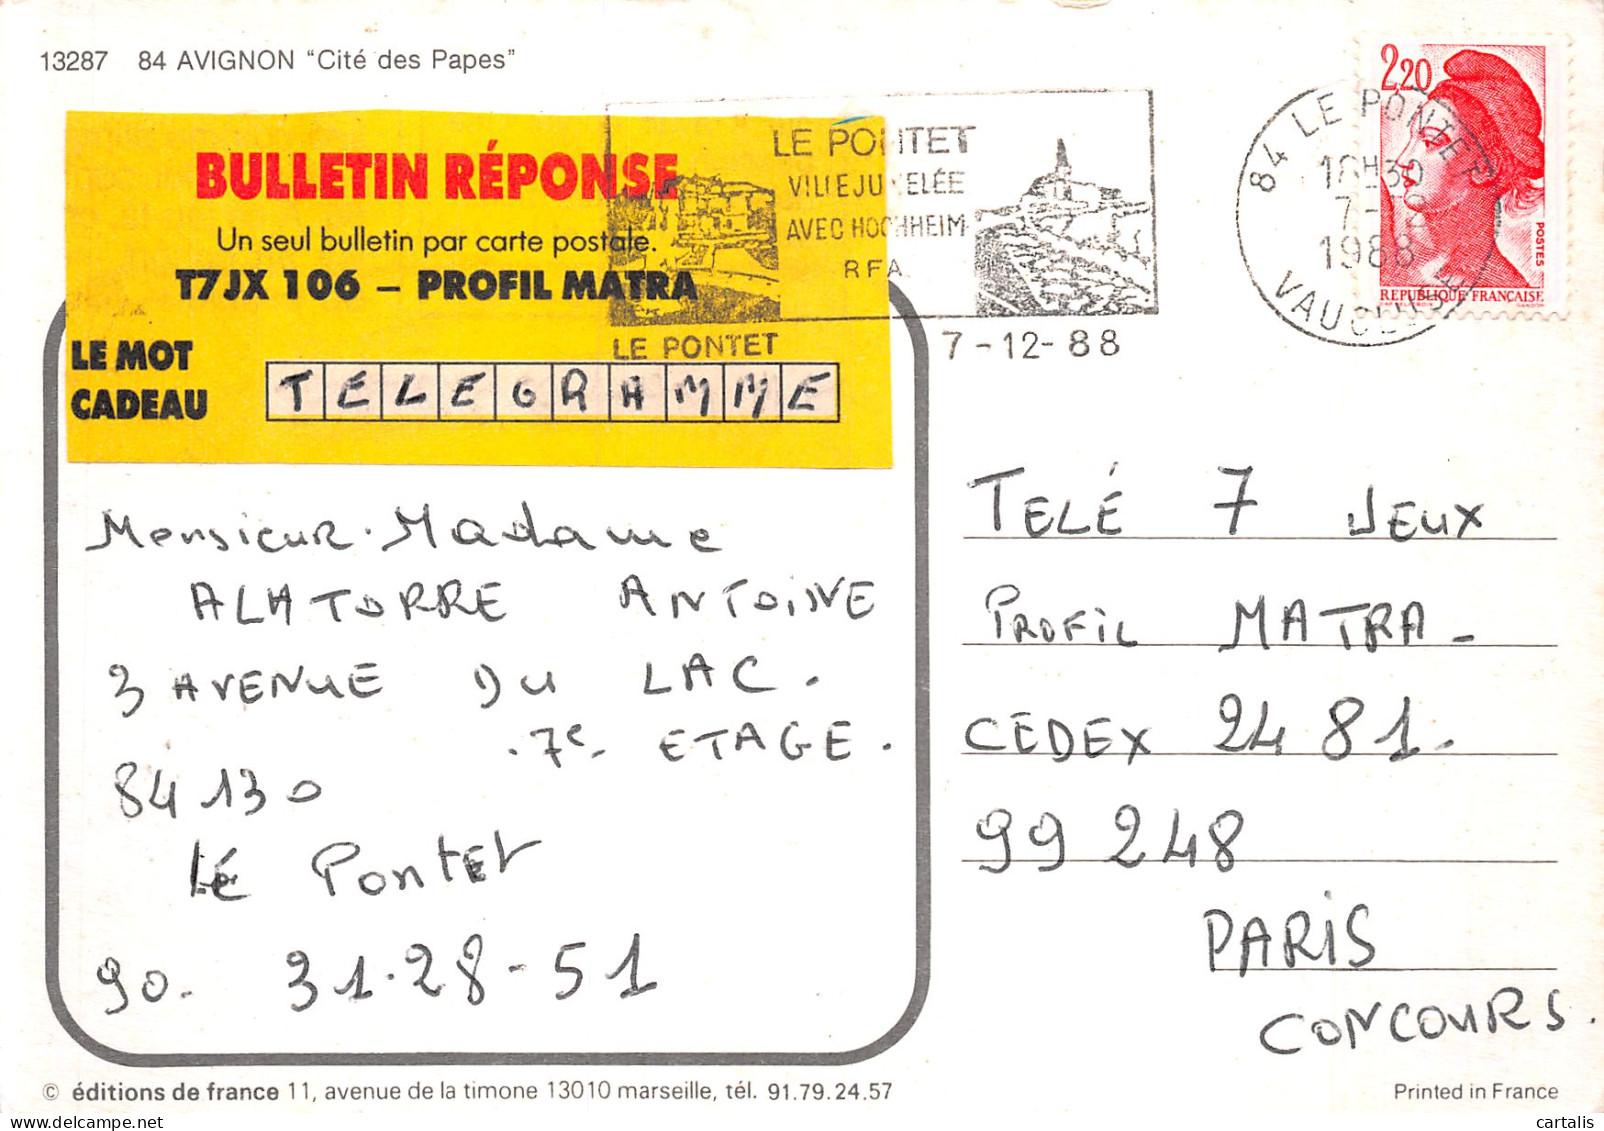 13287 84 AVIGNON "Cité des Papes"
BULLETIN RÉPONSE
Un seul bulletin par carte postale.
T7JX 106 – PROFIL MATRA
LE MOT
CADEAU
TELEGRAMME
LE PONTET
AVEC HOCHHEIM
RFA
LE PONTET
7-12-88
84 LE PONTET
1988
VAUCLUSE
2,20
POSTES
REPUBLIQUE FRANÇAISE
Monsieur. Madame
ALATORRE ANTOINE
3 AVENUE DU LAC.
.7e- ETAGE.
84130
Lé Pontet
90. 31.28-51
TELÉ 7 JEUX
PROFIL MATRA-
CEDEX 2481.
99 248
PARIS
CONCOURS.
© éditions de france 11, avenue de la timone 13010 marseille, tél. 91.79.24.57
Printed in France
cartalis